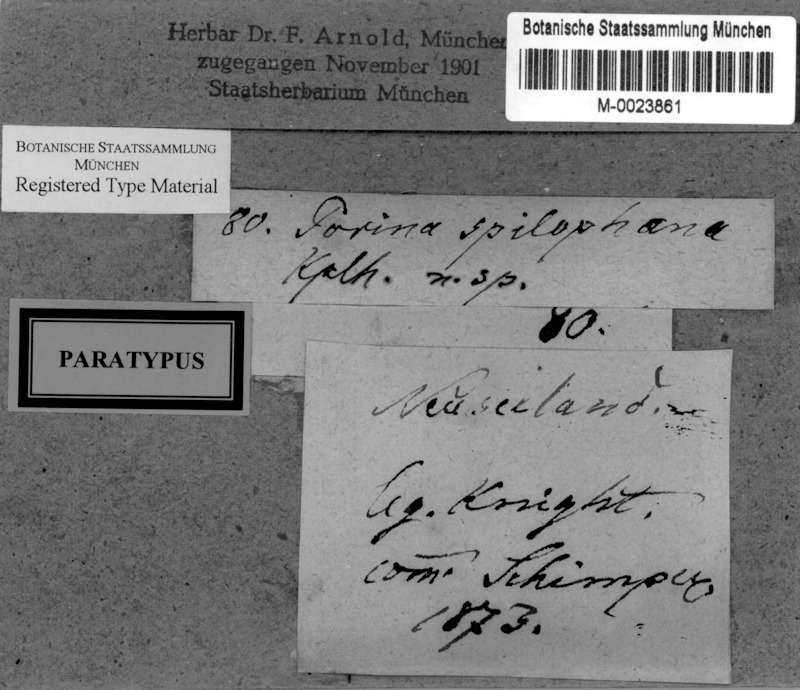 Herbar Dr. F. Arnold, München
zugegangen November 1901
Staatsherbarium München
Botanische Staatssammlung München
M-0023861
BOTANISCHE STAATSSAMMLUNG
MÜNCHEN
Registered Type Material
80. Porina spilophana
Kplh. n. sp.
80.
PARATYPUS
Neuseeland.
leg. Knight.
com. Schimper
1873.